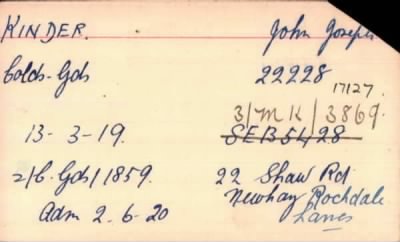 KINDER. John Joseph
Colds. Gds 22228
17127.
3/MK/3869.
13-3-19. SEB5428
2/6. Gds/1859. 22 Shaw Rd
Newhay Rochdale
Adm 2-6-20 Lancs